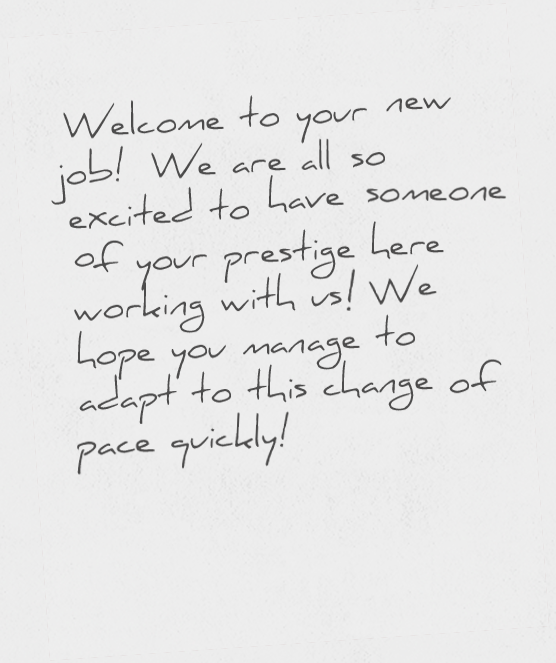 Welcome to your new
job! We are all so
excited to have someone
of your prestige here
working with us! We
hope you manage to
adapt to this change of
pace quickly!